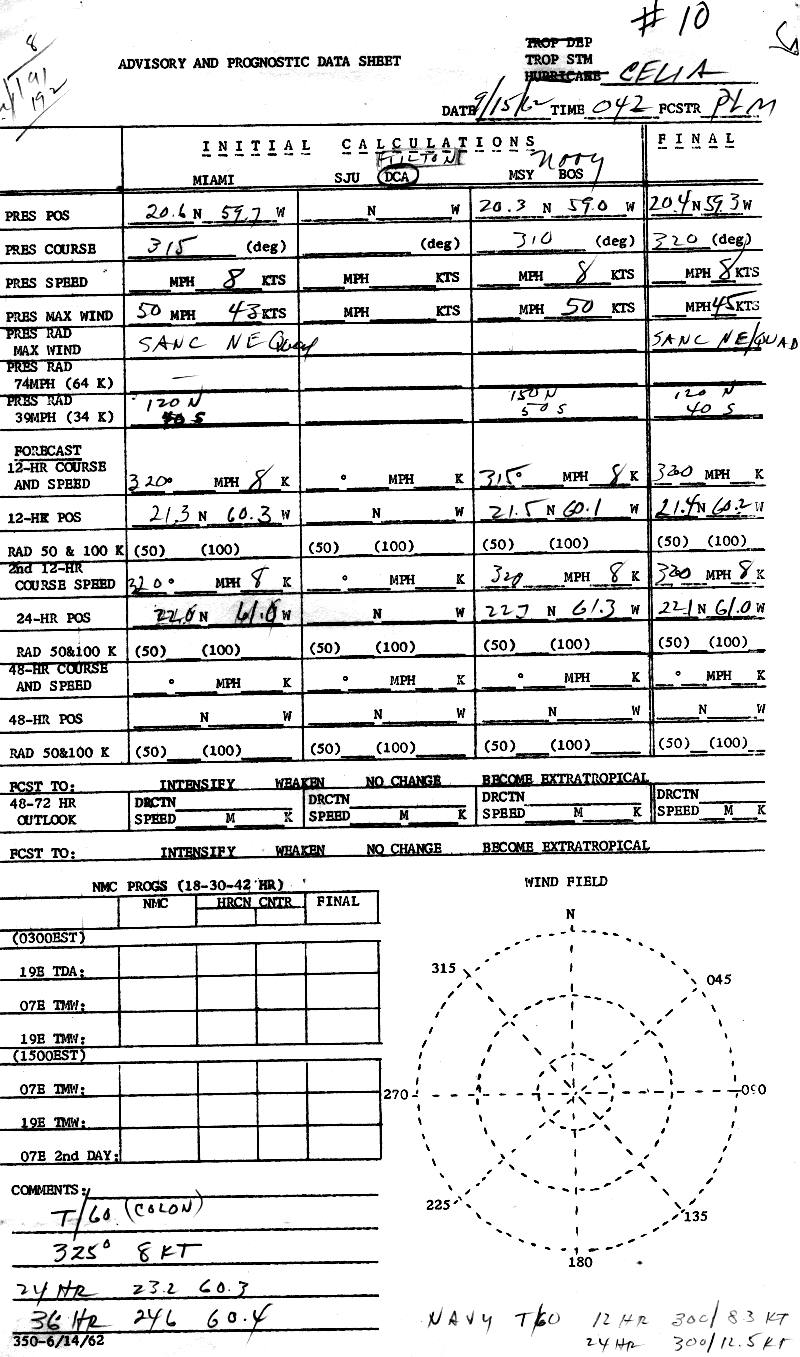 # 10
8
191
192
TROP DEP
ADVISORY AND PROGNOSTIC DATA SHEET TROP STM
HURRICANE CELIA
DATE 9/15/62 TIME 04Z FCSTR PLM
INITIAL CALCULATIONS FINAL
HILTON Navy
MIAMI SJU DCA MSY BOS
PRES POS 20.6 N 59.7 W N W 20.3 N 59.0 W 20.4 N 59.3 W
PRES COURSE 315 (deg) (deg) 310 (deg) 320 (deg)
PRES SPEED MPH 8 KTS MPH KTS MPH 8 KTS MPH 8 KTS
PRES MAX WIND 50 MPH 43 KTS MPH KTS MPH 50 KTS MPH 45 KTS
PRES RAD
MAX WIND SANC NE Quad SANC NE/QUAD
PRES RAD
74MPH (64 K) —
PRES RAD 120 N 150 N 120 N
39MPH (34 K) 40 S 50 S 40 S
FORECAST
12-HR COURSE
AND SPEED 320° MPH 8 K ° MPH K 315° MPH 8 K 320 MPH K
12-HR POS 21.3 N 60.3 W N W 21.5 N 60.1 W 21.4 N 60.2 W
RAD 50 & 100 K (50) (100) (50) (100) (50) (100) (50) (100)
2nd 12-HR
COURSE SPEED 320° MPH 8 K ° MPH K 320 MPH 8 K 320 MPH 8 K
24-HR POS N 61.0 W N W 22.7 N 61.3 W 22.1 N 61.0 W
RAD 50&100 K (50) (100) (50) (100) (50) (100) (50) (100)
48-HR COURSE
AND SPEED ° MPH K ° MPH K ° MPH K ° MPH K
48-HR POS N W N W N W N W
RAD 50&100 K (50) (100) (50) (100) (50) (100) (50) (100)
FCST TO: INTENSIFY WEAKEN NO CHANGE BECOME EXTRATROPICAL
48-72 HR DRCTN DRCTN DRCTN DRCTN
OUTLOOK SPEED M K SPEED M K SPEED M K SPEED M K
FCST TO: INTENSIFY WEAKEN NO CHANGE BECOME EXTRATROPICAL
NMC PROGS (18-30-42 HR)
NMC HRCN CNTR FINAL
(0300EST)
19E TDA:
07E TMW:
19E TMW:
(1500EST)
07E TMW:
19E TMW:
07E 2nd DAY:
WIND FIELD
N
315 045
270 090
225 135
180
COMMENTS:
T/60 (COLON)
325° 8 KT
24 HR 23.2 60.3
36 HR 246 60.4
350-6/14/62
NAVY T/60 12 HR 300/8.3 KT
24 HR 300/12.5 KT